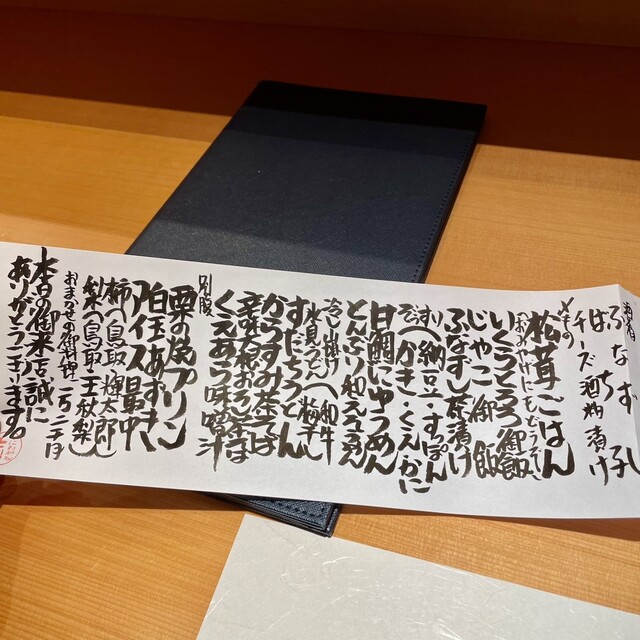 お肴
ふなずし
はちの子
チーズ酒粕漬け
〆もの
松茸ごはん
(おみやげにもどうぞ)
いくらとろろ御飯
じゃこ御飯
ふなずし茶漬け
すし(納豆・すっぽん
ぞうすい(かき・くえ・かに
甘鯛にゅうめん
とんぶり和ええん
冷し・掛け(和牛
氷見うどん(梅干し
すだちうどん
からすみ茶そば
辛味大根おろし茶そば
くえあら味噌汁
別腹
栗の焼プリン
白玉あずき
アイス最中
柿(鳥取 輝太郎)
梨(鳥取 王秋梨)
おまかせの御料理
本日の御来店誠に
ありがとうございます。